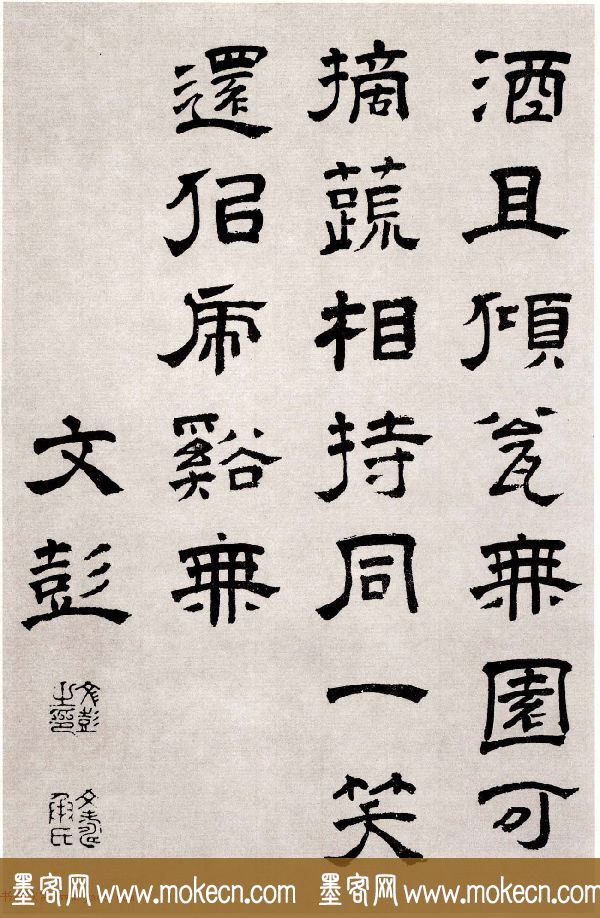 酒且傾瓮無園可
摘蔬相持同一笑
還佀虎谿無
文彭
文彭之印
文壽承氏
墨客网 www.mokecn.com 墨客网 www.mokecn.com